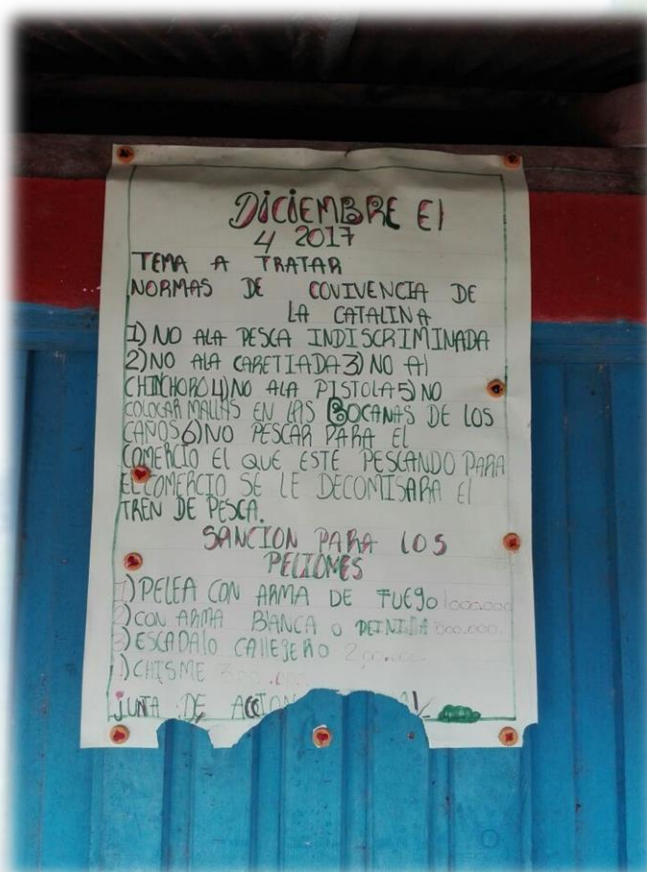 DICIEMBRE El
4 2017
TEMA A TRATAR
NORMAS DE COVIVENCIA DE
LA CATALINA
1) NO ALA PESCA INDISCRIMINADA
2) NO ALA CARETIADA 3) NO Al
CHINCHORO 4) NO ALA PISTOLA 5) NO
COLOCAR MALLAS EN LAS BOCANAS DE LOS
CAÑOS 6) NO PESCAR PARA EL
COMERCIO EL QUE ESTE PESCANDO PARA
EL COMERCIO SE LE DECOMISARA El
TREN DE PESCA.
SANCION PARA LOS
PELIONES
1) PELEA CON ARMA DE FUEgO 1000.000
2) CON ARMA BLANCA O 
3) ESCADALO CALLEJERO
) CHISME
JUNTA DE ACCION